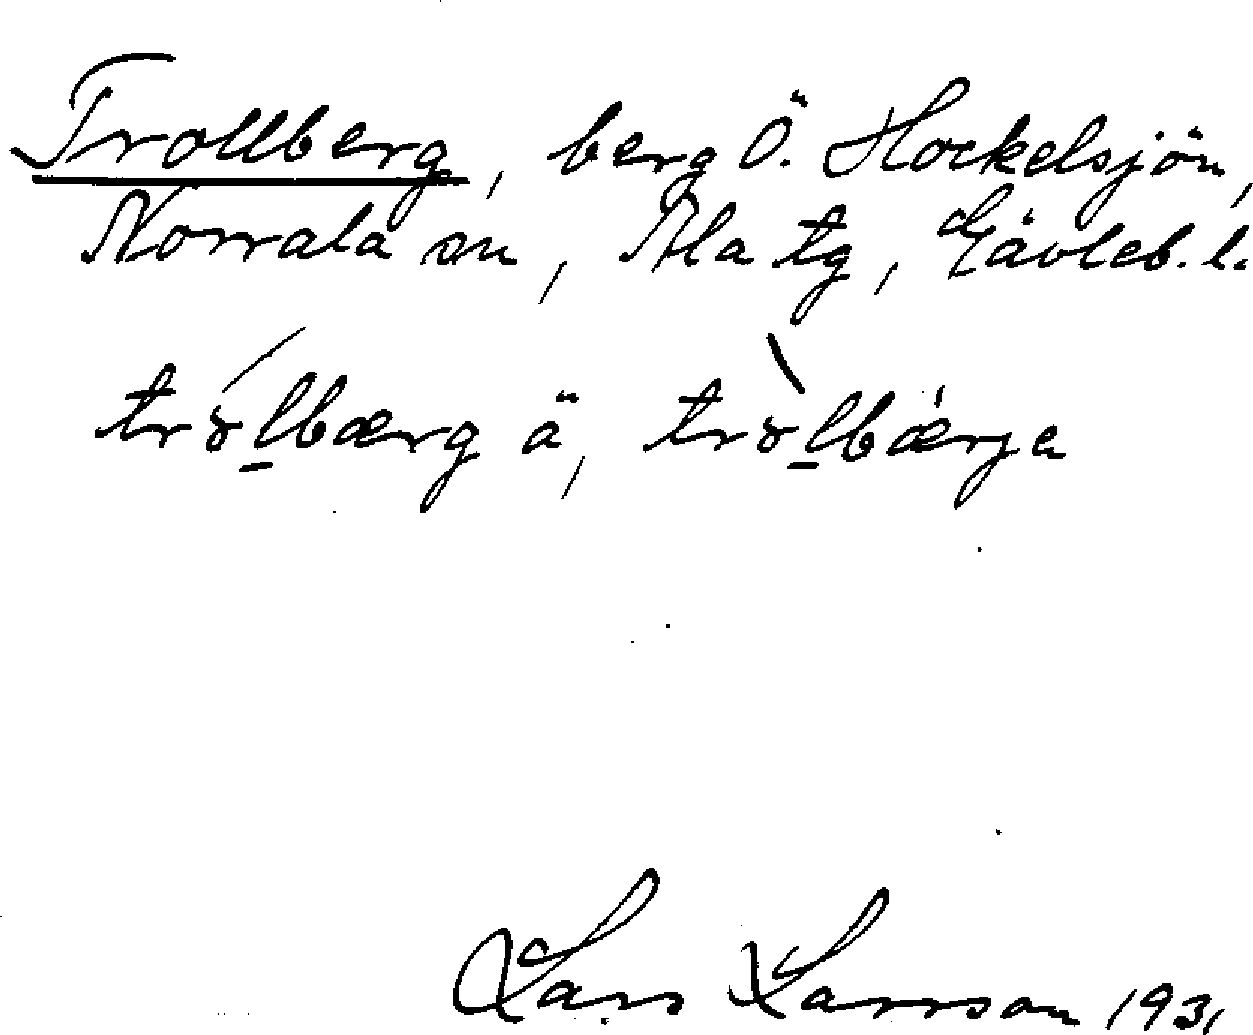 Trollberg, berg Ö. Hockelsjön,
Norrala sn, Ala tg, Gävleb. l.
trólbærg ä, tròlbærja
Lars Larsson 1931